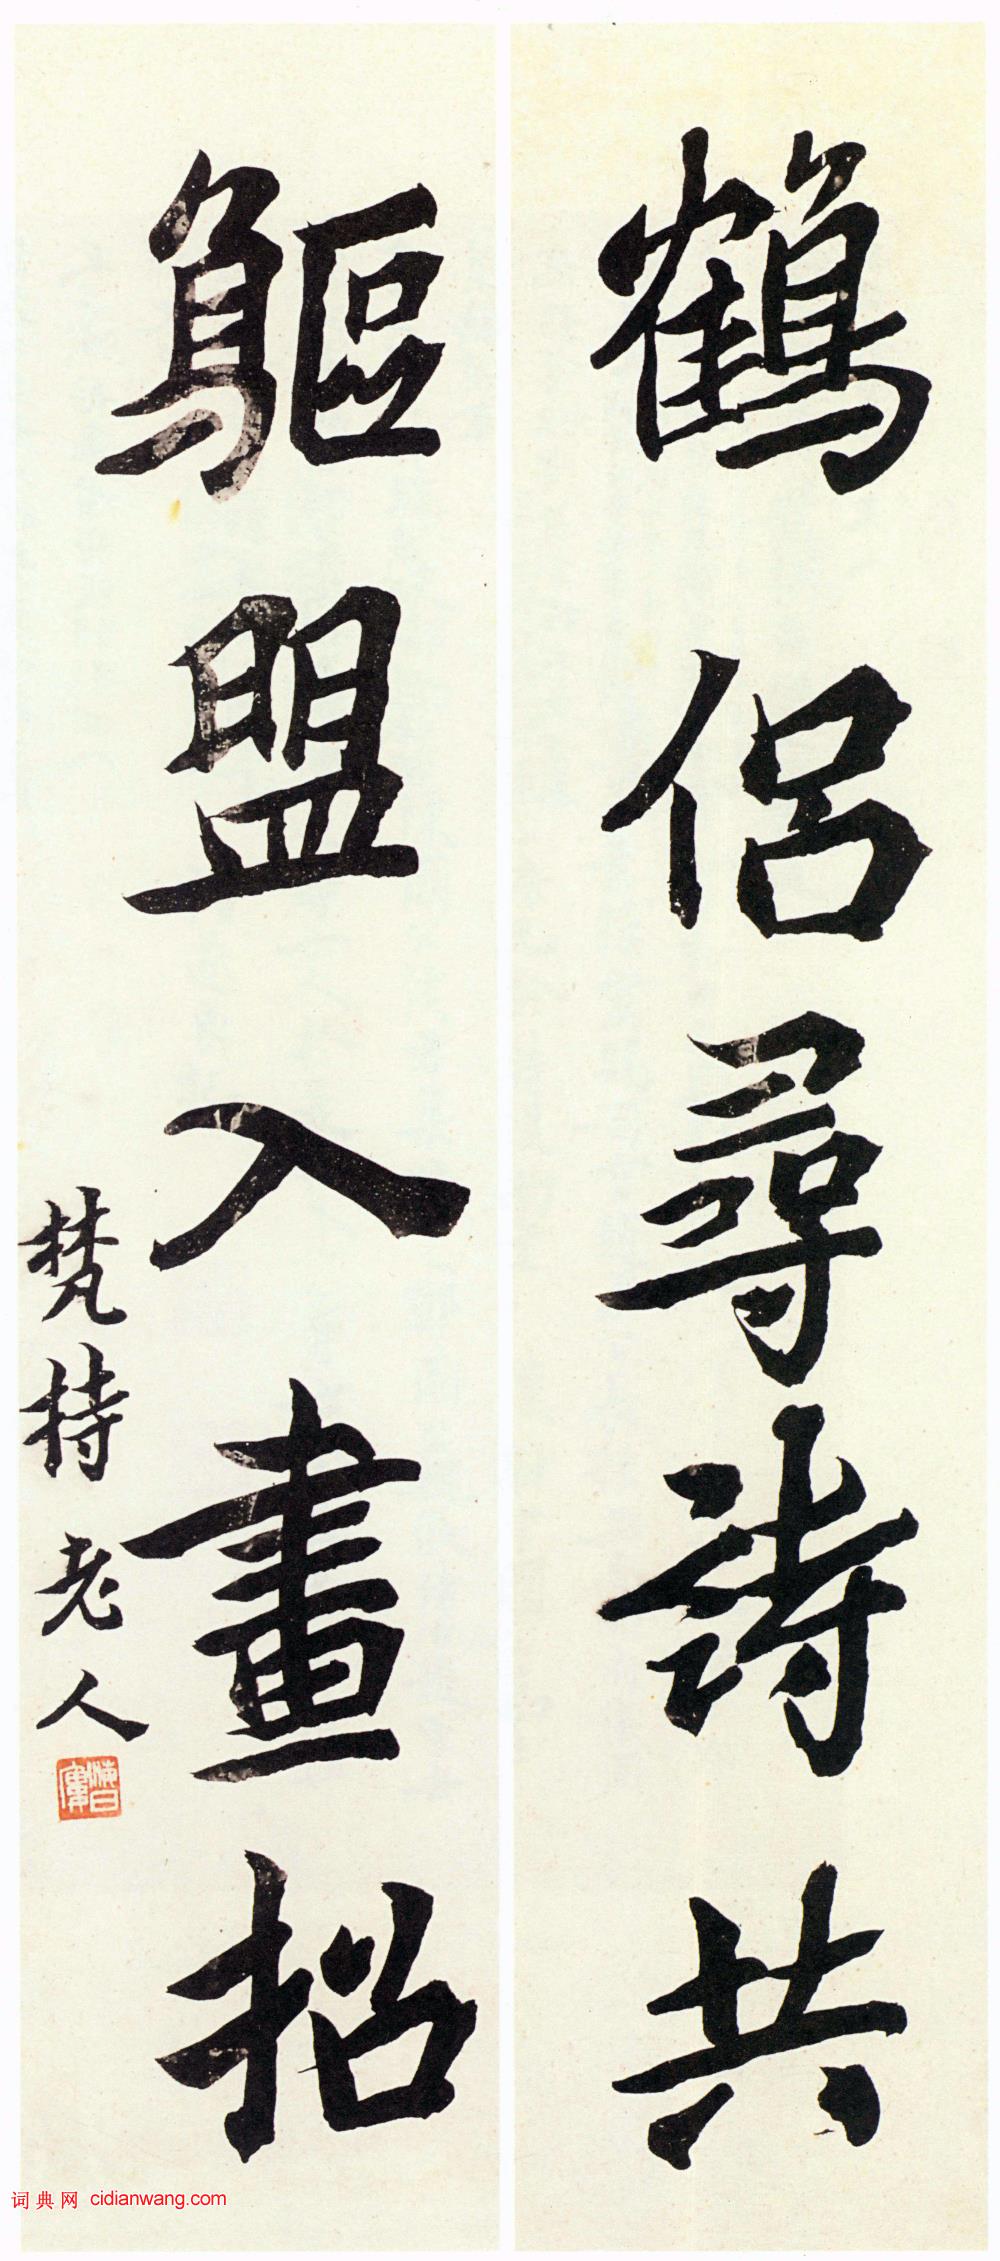 鶴侶尋詩共
鷗盟入畫招
梵持老人
海日廔
词典网 cidianwang.com